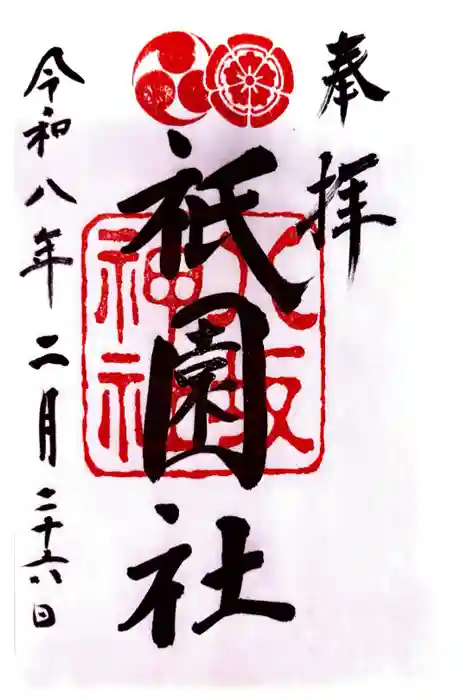 奉拝
八坂神社
祇園社
令和八年二月二十六日